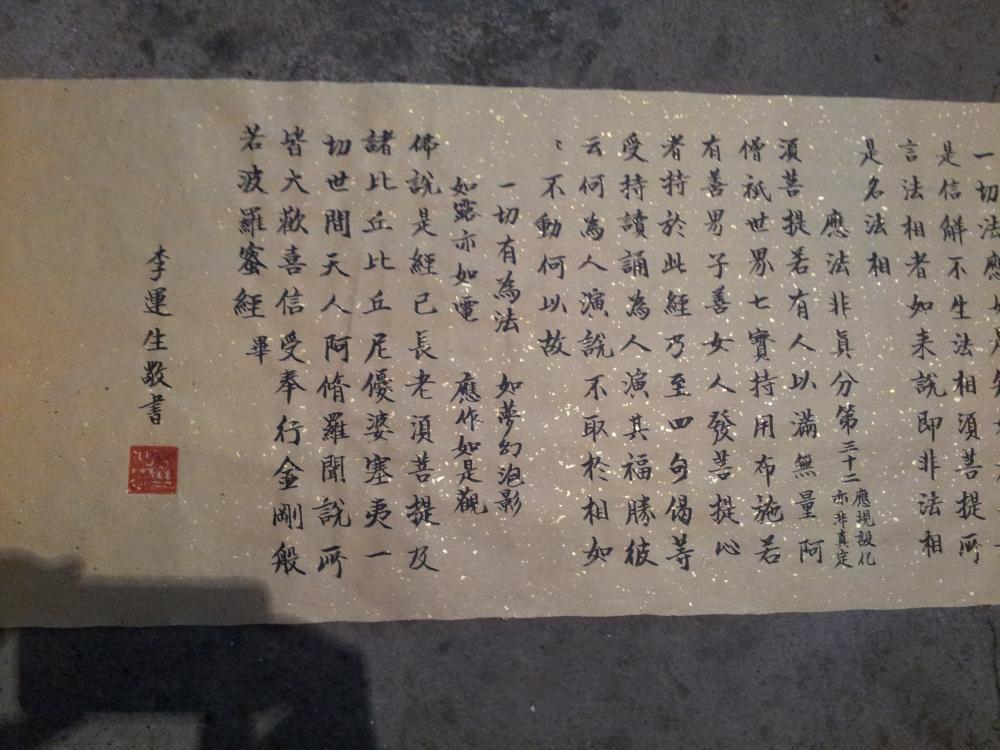 一切法應如是知如
是信解不生法相須菩提所
言法相者如来說即非法相
是名法相
應法非眞分第三十二
應現設化
亦非真定
須菩提若有人以滿無量阿
僧祇世界七寶持用布施若
有善男子善女人發菩提心
者持於此經乃至四句偈等
受持讀誦為人演其福勝彼
云何為人演說不取於相如
〻不動何以故
一切有為法 如夢幻泡影
如露亦如電 應作如是觀
佛說是經已長老須菩提及
諸比丘比丘尼優婆塞夷一
切世間天人阿脩羅聞說所
皆大歡喜信受奉行金剛般
若波羅蜜經 畢
李運生敬書